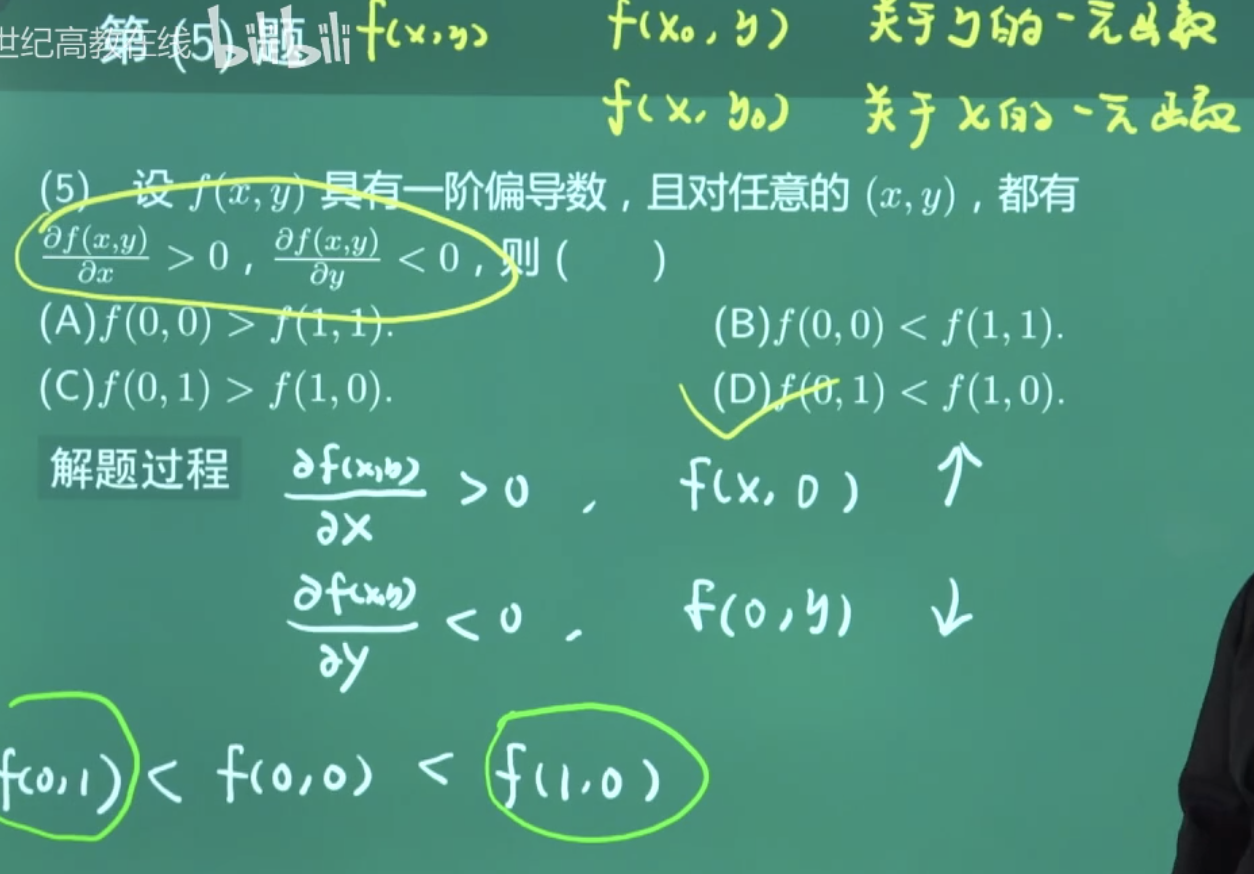 世纪高教在线 bilibili
第(5)题 f(x,y) f(x₀, y) 关于y的一元函数
f(x, y₀) 关于x的一元函数
(5) 设 f(x, y) 具有一阶偏导数，且对任意的 (x, y)，都有
∂f(x,y)/∂x > 0，∂f(x,y)/∂y < 0，则 ( )
(A)f(0, 0) > f(1, 1). (B)f(0, 0) < f(1, 1).
(C)f(0, 1) > f(1, 0). (D)f(0, 1) < f(1, 0).
解题过程 ∂f(x,y)/∂x > 0 , f(x, 0) ↑
∂f(x,y)/∂y < 0 , f(0, y) ↓
f(0,1) < f(0,0) < f(1,0)